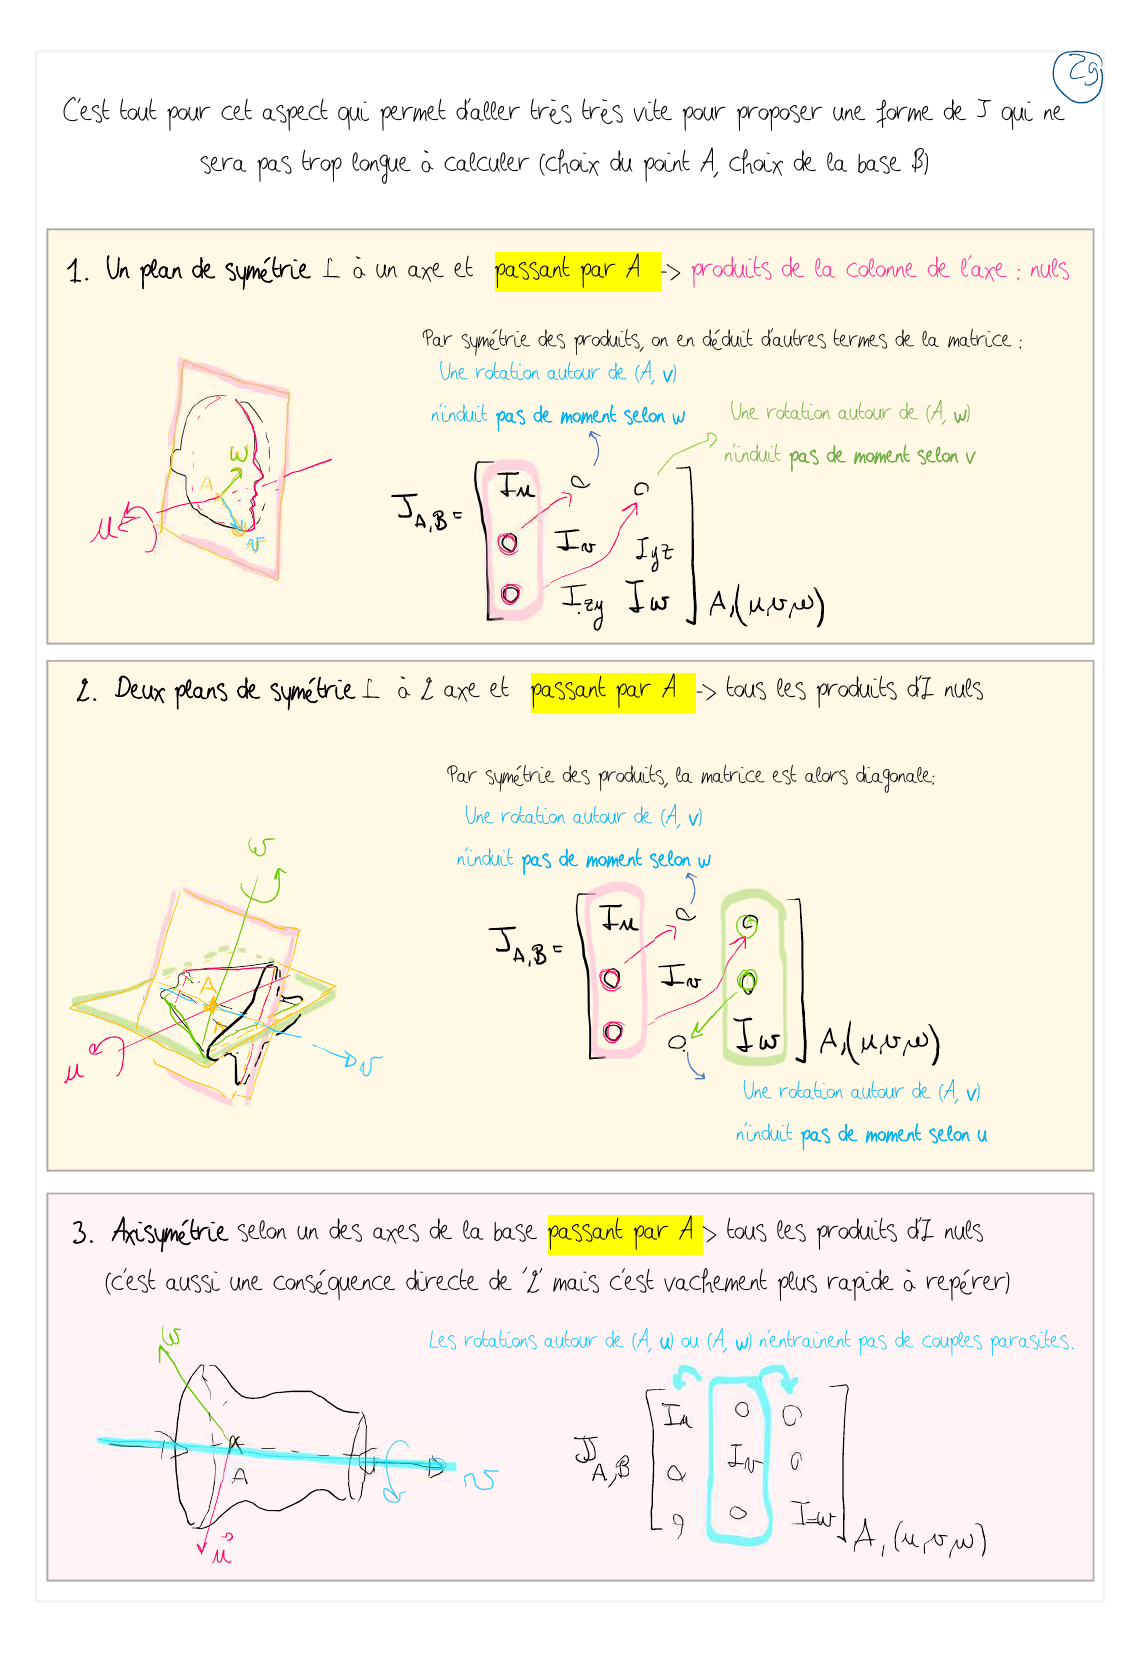 29
C'est tout pour cet aspect qui permet d'aller très très vite pour proposer une forme de J qui ne
sera pas trop longue à calculer (choix du point A, choix de la base B)
1. Un plan de symétrie ⊥ à un axe et passant par A -> produits de la colonne de l'axe : nuls
Par symétrie des produits, on en déduit d'autres termes de la matrice :
Une rotation autour de (A, v)
n'induit pas de moment selon w
Une rotation autour de (A, w)
n'induit pas de moment selon v
w
A
u
v
J A,B =
Iu 0 0
0 Iv Iyz
0 Izy Iw
A,(u,v,w)
2. Deux plans de symétrie ⊥ à 2 axe et passant par A -> tous les produits d'I nuls
Par symétrie des produits, la matrice est alors diagonale:
Une rotation autour de (A, v)
n'induit pas de moment selon w
w
A
u
v
J A,B =
Iu 0 0
0 Iv 0
0 0 Iw
A,(u,v,w)
Une rotation autour de (A, v)
n'induit pas de moment selon u
3. Axisymétrie selon un des axes de la base passant par A > tous les produits d'I nuls
(c'est aussi une conséquence directe de '2' mais c'est vachement plus rapide à repérer)
Les rotations autour de (A, u) ou (A, w) n'entrainent pas de couples parasites.
w
A
v
u
J A,B
Iu 0 0
0 Iv 0
0 0 I=w
A,(u,v,w)